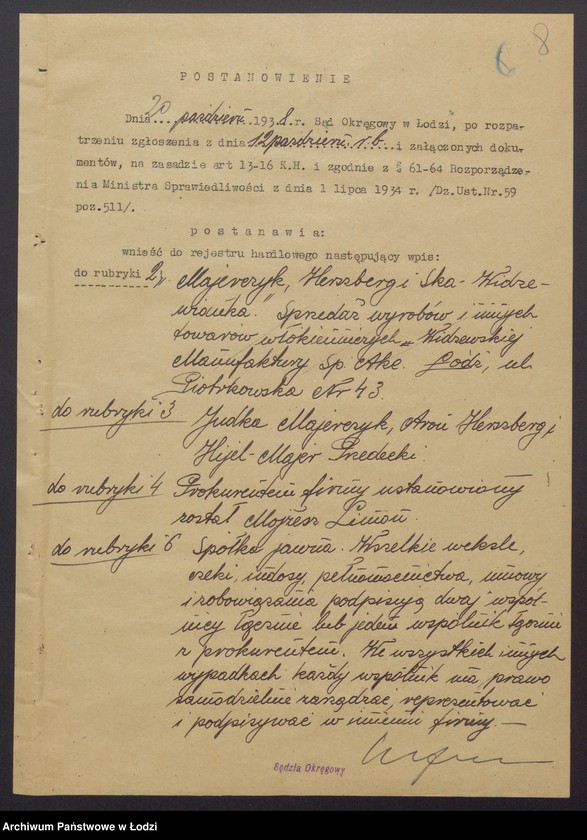 8
P O S T A N O W I E N I E
Dnia 20 październ. 1938 r. Sąd Okręgowy w Łodzi, po rozpa-
trzeniu zgłoszenia z dnia 12 październ. r.b. i załączonych doku-
mentów, na zasadzie art 13-16 K.H. i zgodnie z § 61-64 Rozporządze-
nia Ministra Sprawiedliwości z dnia 1 lipca 1934 r. /Dz.Ust.Nr.59
poz.511/.
p o s t a n a w i a :
wnieść do rejestru handlowego następujący wpis:
do rubryki 2 Majerczyk, Herszberg i Ska - Widze-
wianka." Sprzedaż wyrobów i innych
towarów włókienniczych Widzewskiej
Manufaktury Sp. Akc. Łódź, ul.
Piotrkowska Nr 43.
do rubryki 3 Judka Majerczyk, Aron Herszberg i
Hijel-Majer Predecki.
do rubryki 4 Prokurentem firmy ustanowiony
został Mojżesz Limon.
do rubryki 6 Spółka jawna. Wszelkie weksle,
czeki, indosy, pełnomocnictwa, umowy
i zobowiązania podpisują dwaj wspól-
nicy łącznie lub jeden wspólnik łącznie
z prokurentem. We wszystkich innych
wypadkach każdy wspólnik ma prawo
samodzielnie zarządzać, reprezentować
i podpisywać w imieniu firmy.—
Sędzia Okręgowy
Archiwum Państwowe w Łodzi